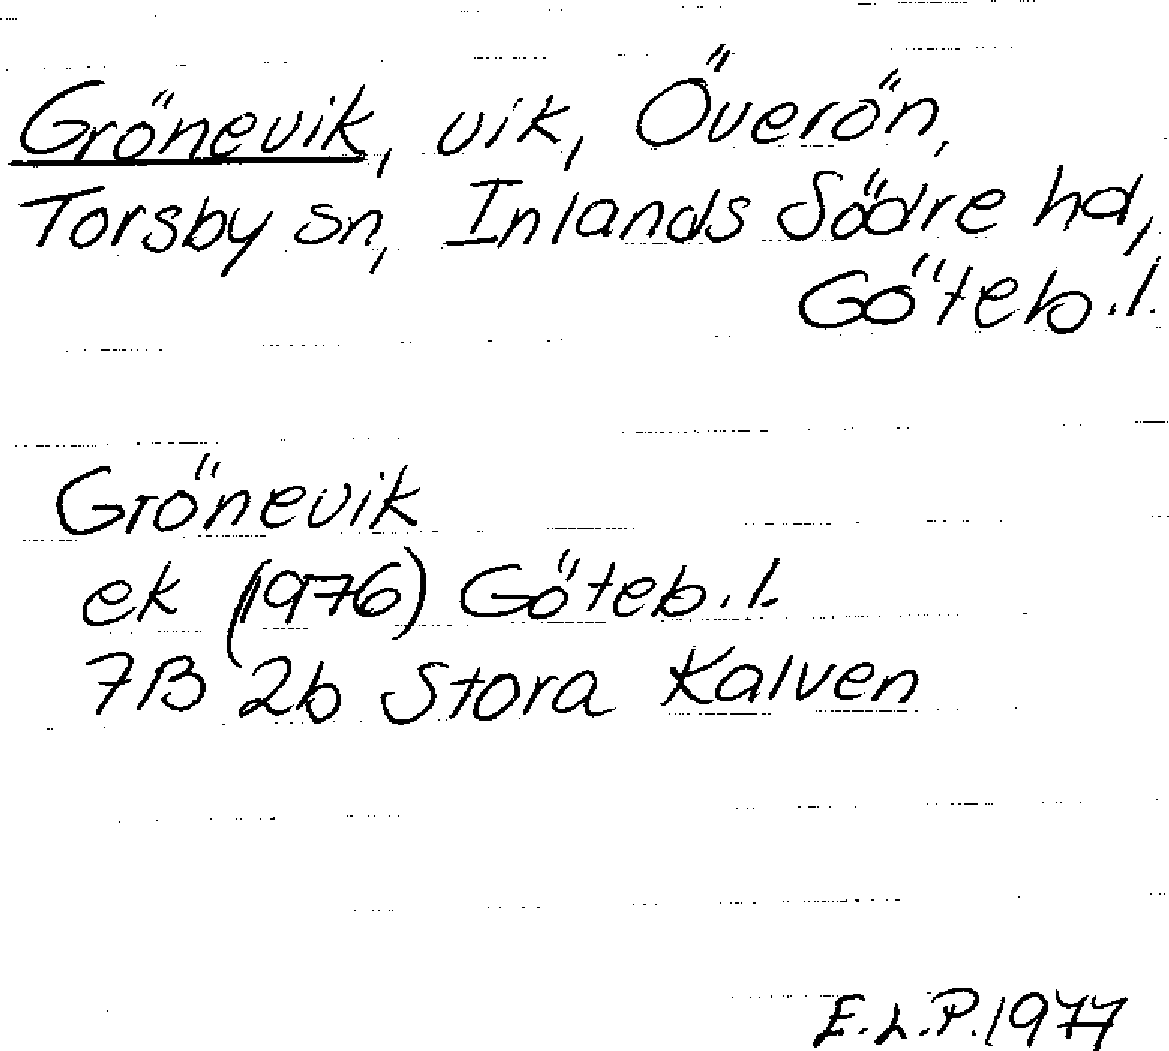 Grönevik, vik, Överön,
Torsby sn, Inlands Södre hd,
Göteb.l.
Grönevik
ek (1976) Göteb.l.
7B 2b Stora Kalven
E.L.P.1977